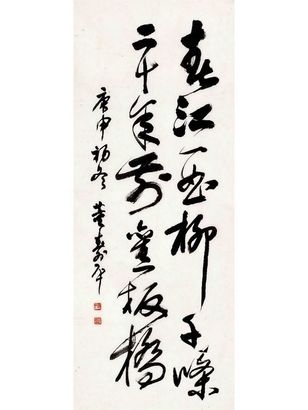 春江一曲柳千條
二十年前舊板橋
庚申初冬 董壽平